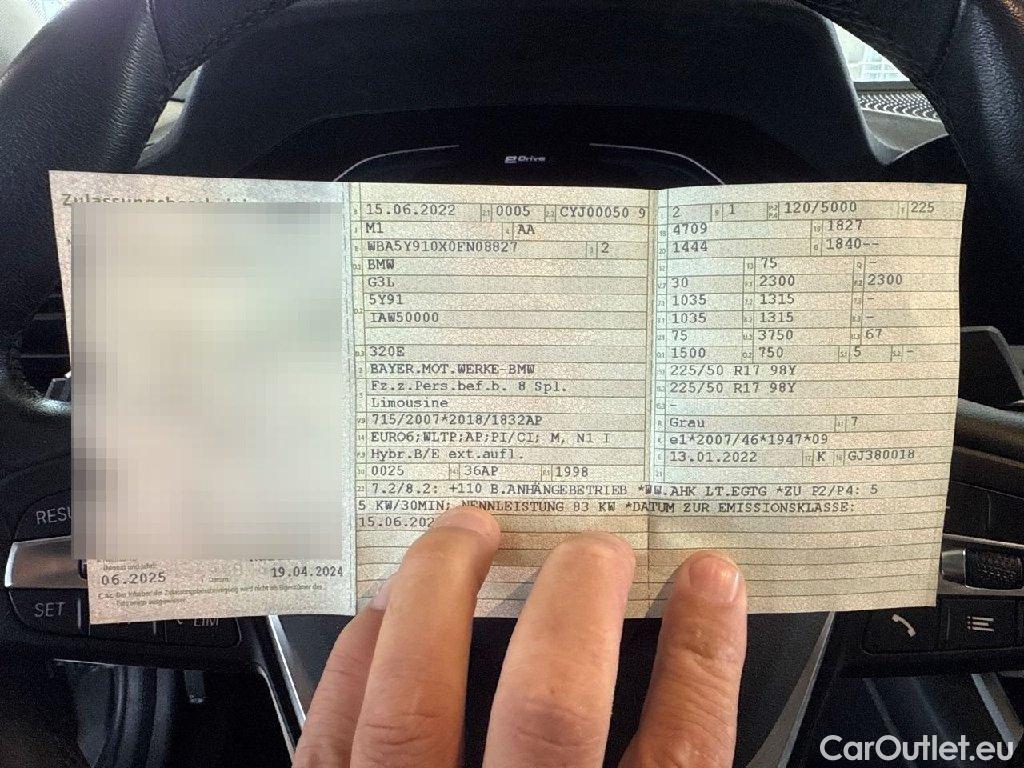 eDrive
15.06.2022 0005 CYJ00050 9
M1 AA
WBA5Y910X0FN08827 2
BMW
G3L
5Y91
IAW50000
320E
BAYER.MOT.WERKE-BMW
Fz.z.Pers.bef.b. 8 Spl.
Limousine
715/2007*2018/1832AP
EURO6;WLTP;AP;PI/CI; M, N1 I
Hybr.B/E ext.aufl.
0025 36AP 1998
2 1 120/5000 225
4709 1827
1444 1840--
75 -
30 2300 2300
1035 1315 -
1035 1315 -
75 3750 67
1500 750 5 -
225/50 R17 98Y
225/50 R17 98Y
-
Grau 7
e1*2007/46*1947*09
13.01.2022 K GJ380018
7.2/8.2: +110 B.ANHÄNGEBETRIEB *WW.AHK LT.EGTG *ZU P2/P4: 5
5 KW/30MIN; NENNLEISTUNG 83 KW *DATUM ZUR EMISSIONSKLASSE: -
15.06.202
06.2025 19.04.2024
SET
LIM
CarOutlet.eu